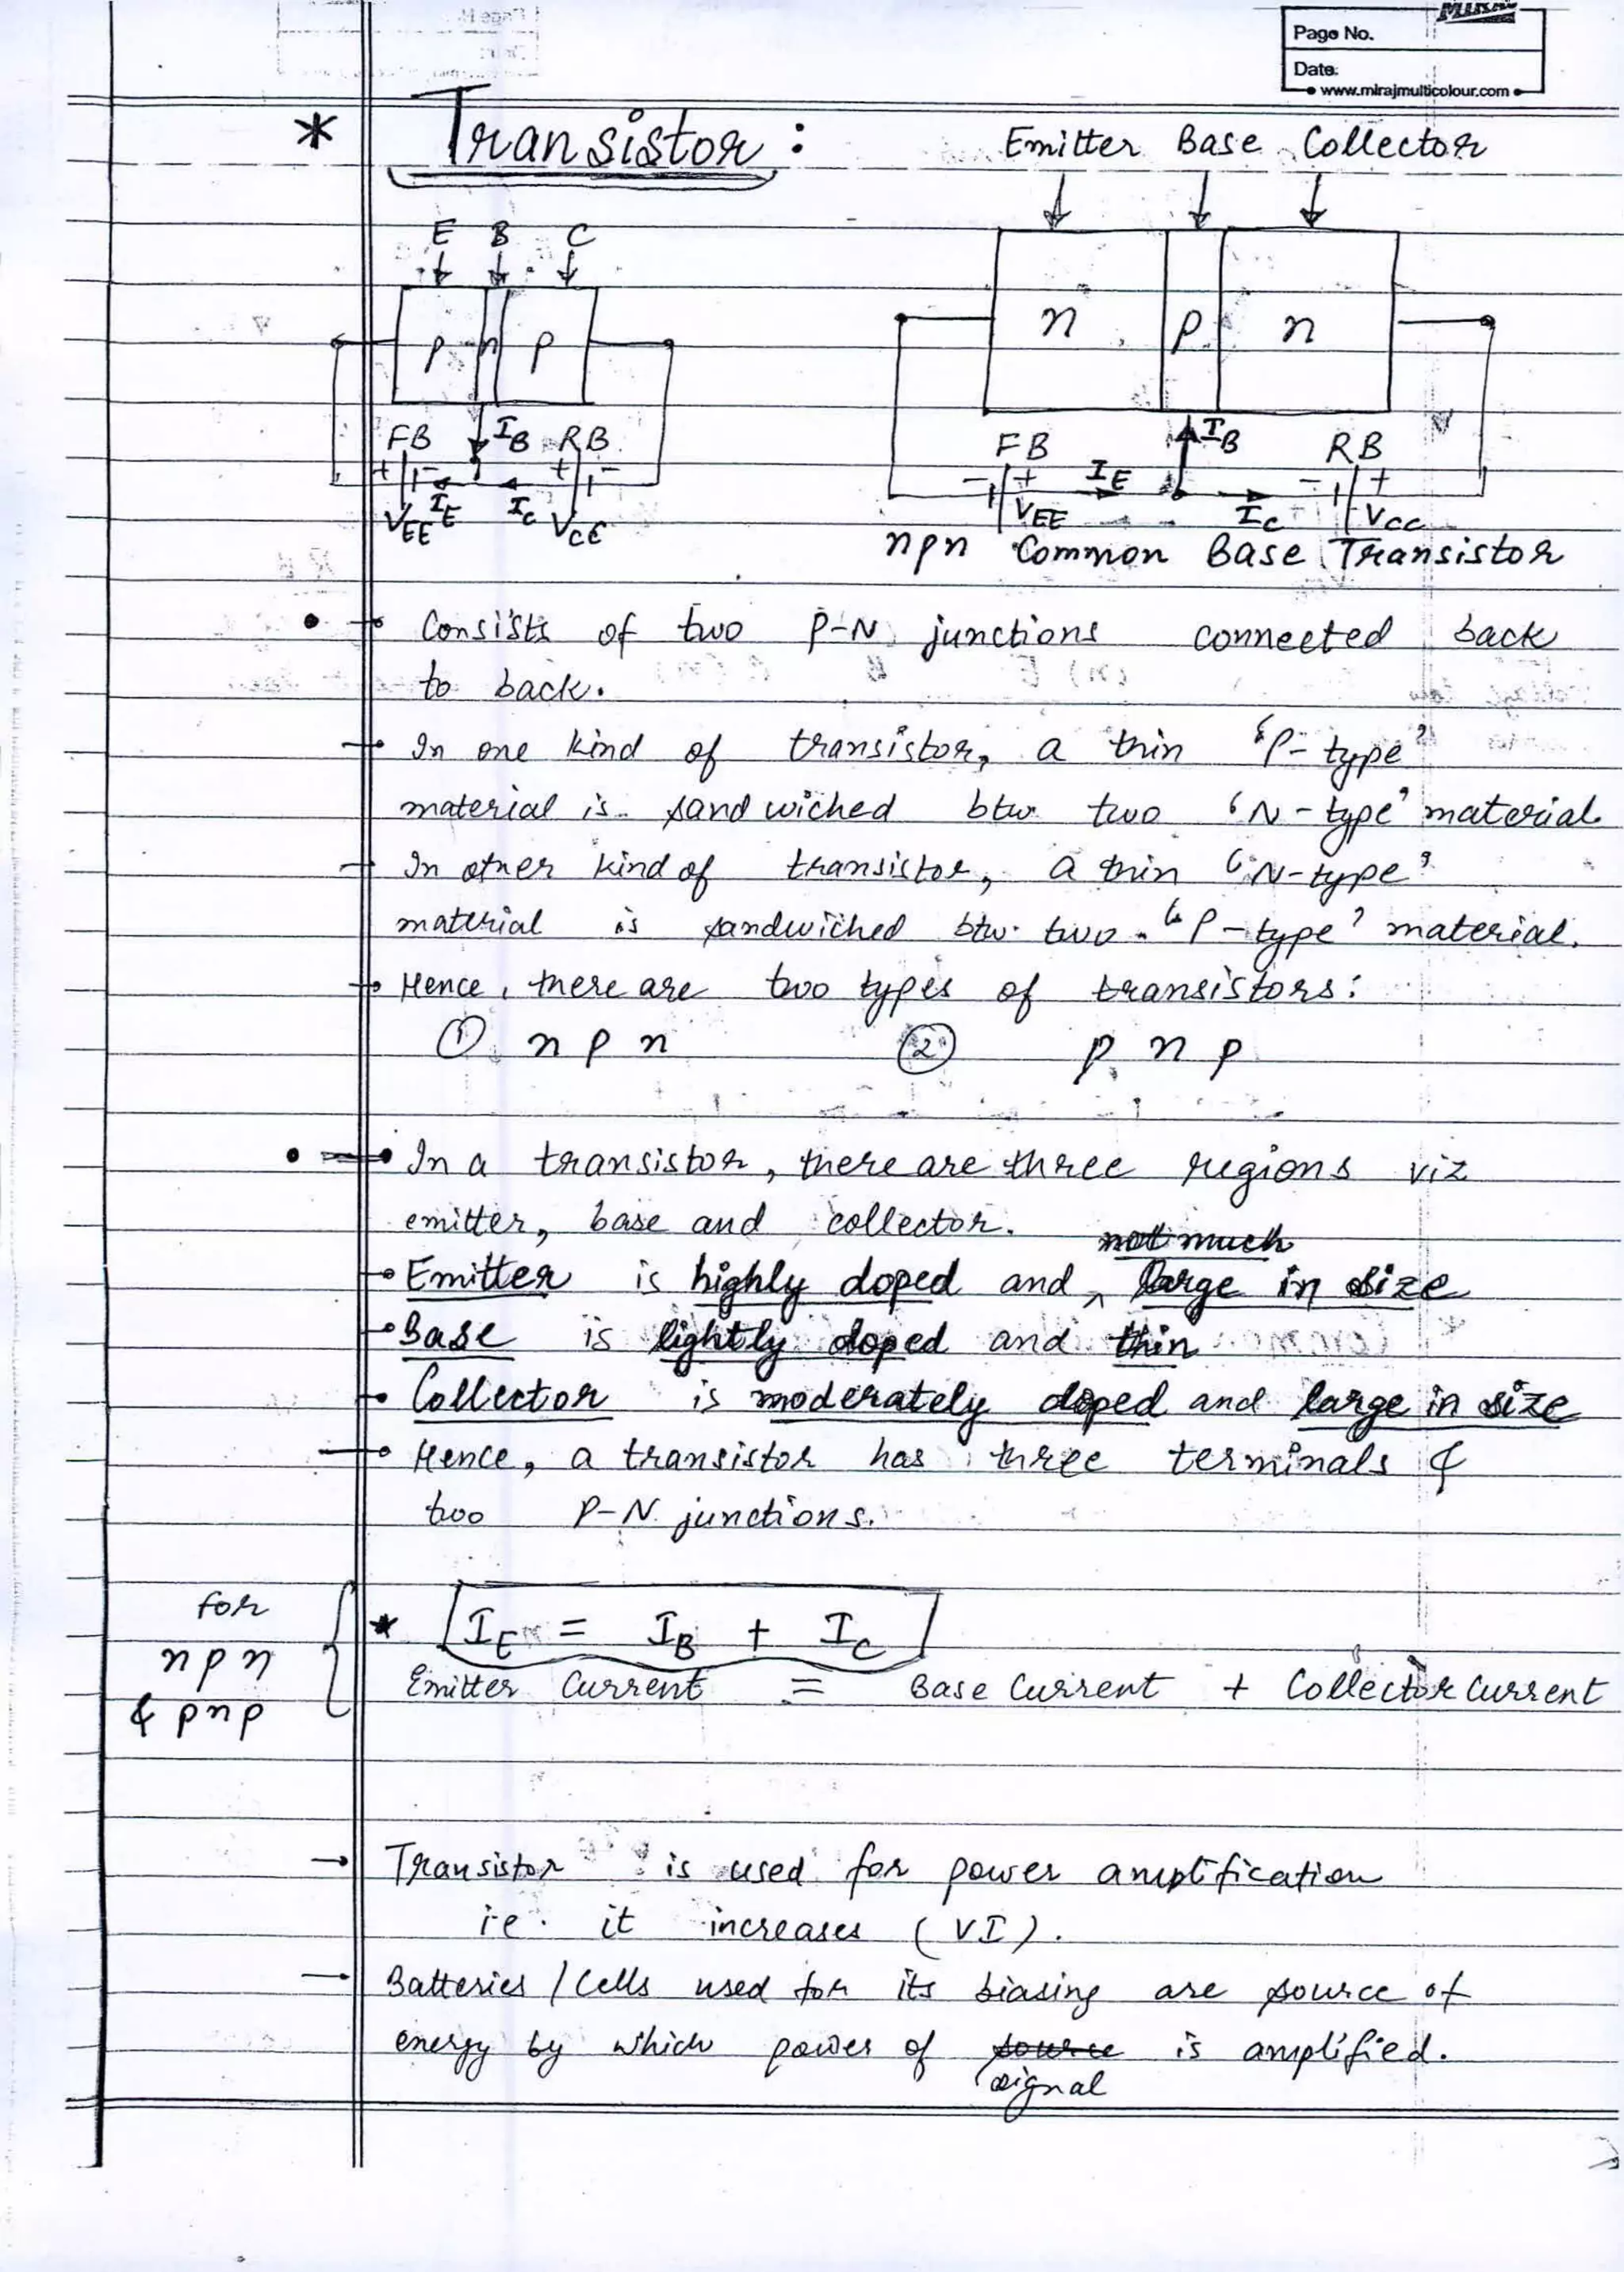 MIRAJ
Page No.
Date:
www.mirajmulticolour.com
* Transistor :
Emitter Base Collector
E B C
p n p
n p n
FB IB RB
+ - + -
IE IC
VEE VCC
FB IB RB
- + IE - +
VEE IC VCC
npn Common Base Transistor
• → Consists of two P-N junctions connected back
to back.
→ In one kind of transistor, a thin 'P-type'
material is sandwiched btw two 'N-type' material
→ In other kind of transistor, a thin 'N-type'
material is sandwiched btw. two 'P-type' material.
→ Hence, there are two types of transistors:
① n p n ② p n p
• → In a transistor, there are three regions viz
emitter, base and collector.
not much
→ Emitter is highly doped and ^ large in size
→ Base is lightly doped and thin
→ Collector is moderately doped and large in size
→ Hence, a transistor has three terminals &
two P-N junctions.
for
npn
& pnp
* IE = IB + IC
Emitter Current = Base Current + Collector Current
→ Transistor is used for power amplification
i.e. it increases (VI).
→ Batteries / Cells used for its biasing are source of
energy by which power of source is amplified.
signal